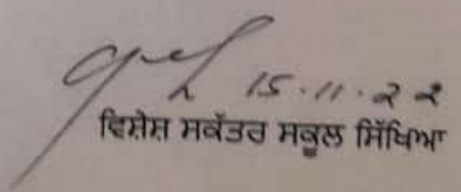 15.11.22
ਵਿਸ਼ੇਸ਼ ਸਕੱਤਰ ਸਕੂਲ ਸਿੱਖਿਆ